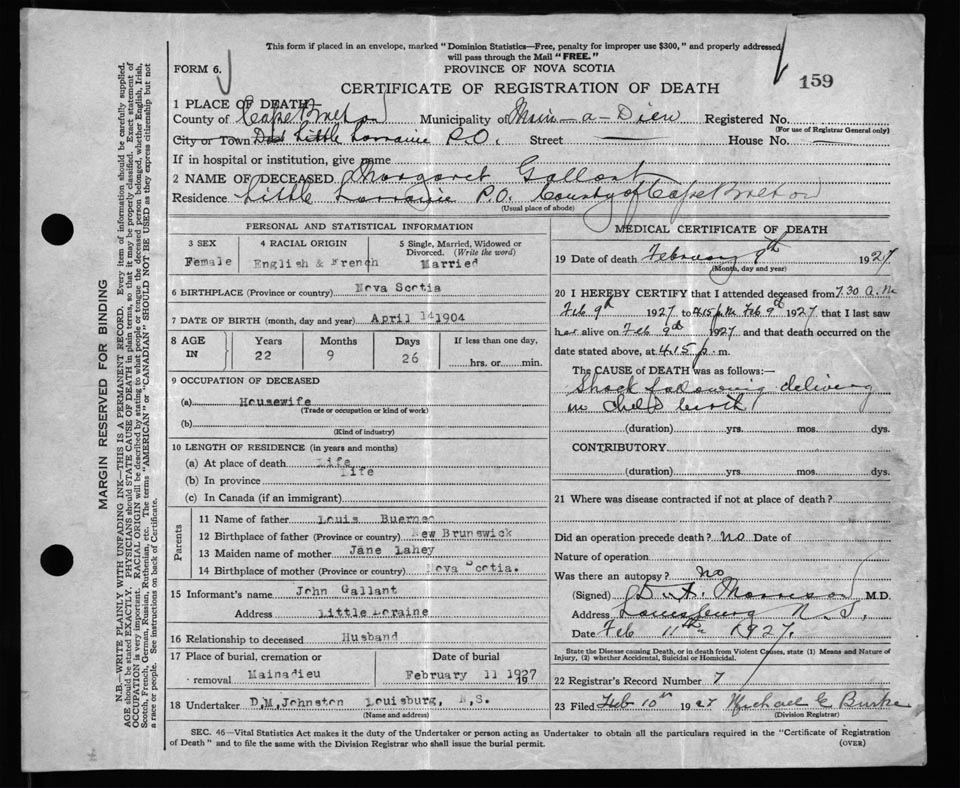 This form if placed in an envelope, marked "Dominion Statistics—Free, penalty for improper use $300," and properly addressed
will pass through the Mail "FREE."
FORM 6.
PROVINCE OF NOVA SCOTIA
CERTIFICATE OF REGISTRATION OF DEATH
159
1 PLACE OF DEATH—
County of Cape Breton Municipality of Main-a-Dieu Registered No.
(For use of Registrar General only)
City or Town Little Lorraine P.O. Street — House No. —
If in hospital or institution, give name
2 NAME OF DECEASED Margaret Gallant
Residence Little Lorraine P.O. County of Cape Breton
(Usual place of abode)
PERSONAL AND STATISTICAL INFORMATION
3 SEX 4 RACIAL ORIGIN 5 Single, Married, Widowed or
Divorced. (Write the word)
Female English & French Married
6 BIRTHPLACE (Province or country) Nova Scotia
7 DATE OF BIRTH (month, day and year) April 14 1904
8 AGE IN Years Months Days If less than one day,
22 9 26 hrs. or min.
9 OCCUPATION OF DECEASED
(a) Housewife
(Trade or occupation or kind of work)
(b)
(Kind of industry)
10 LENGTH OF RESIDENCE (in years and months)
(a) At place of death Life
(b) In province Life
(c) In Canada (if an immigrant)
Parents
11 Name of father Louis
12 Birthplace of father (Province or country) New Brunswick
13 Maiden name of mother Jane Lahey
14 Birthplace of mother (Province or country) Nova Scotia.
15 Informant's name John Gallant
Address Little Loraine
16 Relationship to deceased Husband
17 Place of burial, cremation or Date of burial
removal Mainadieu February 11 1927
18 Undertaker D,M,Johnston Louisburg, N,S.
(Name and address)
MEDICAL CERTIFICATE OF DEATH
19 Date of death February 9th 1927
(Month, day and year)
20 I HEREBY CERTIFY that I attended deceased from 7.30 A.M
Feb 9th 1927 to 4.15 p.m Feb 9th 1927 that I last saw
her alive on Feb 9th 1927 and that death occurred on
date stated above, at 4.15 p. m.
The CAUSE of DEATH was as follows:—
Shock following delivery
in child birth
(duration) yrs. mos. dys.
CONTRIBUTORY
(duration) yrs. mos. dys.
21 Where was disease contracted if not at place of death?
Did an operation precede death? No Date of
Nature of operation
Was there an autopsy? No
(Signed) Morrison M.D.
Address Louisburg N.S.
Date Feb 11th 1927.
State the Disease causing Death, or in death from Violent Causes, state (1) Means and Nature of
Injury, (2) whether Accidental, Suicidal or Homicidal.
22 Registrar's Record Number 7
23 Filed Feb 10th 1927 Michael C Burke
(Division Registrar)
SEC. 46—Vital Statistics Act makes it the duty of the Undertaker or person acting as Undertaker to obtain all the particulars required in the "Certificate of Registration
of Death" and to file the same with the Division Registrar who shall issue the burial permit.
(OVER)
MARGIN RESERVED FOR BINDING
N.B.—WRITE PLAINLY WITH UNFADING INK—THIS IS A PERMANENT RECORD. Every item of information should be carefully supplied.
AGE should be stated EXACTLY. PHYSICIANS should STATE CAUSE OF DEATH in plain terms, so that it may be properly classified. Exact statement of
OCCUPATION is very important. RACIAL ORIGIN will be described by stating to what people or tongue the deceased person belonged, whether English, Irish,
Scotch, French, German, Russian, Ruthenian, etc. The terms "AMERICAN" or "CANADIAN" SHOULD NOT BE USED as they express citizenship but not
a race or people. See instructions on back of Certificate.